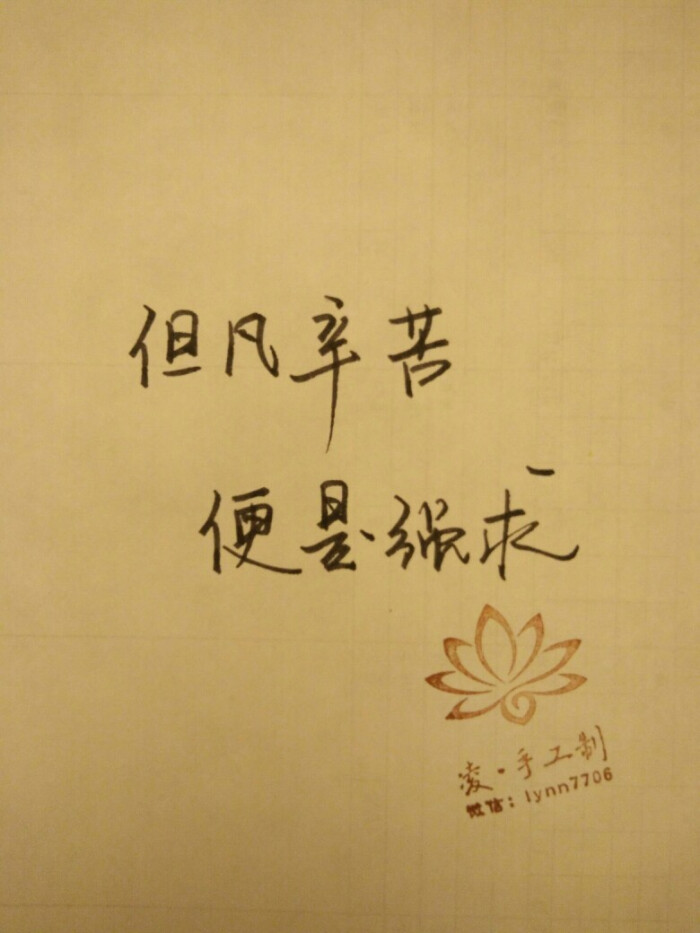 但凡辛苦
便是强求
凌·手工制
微信：lynn7706